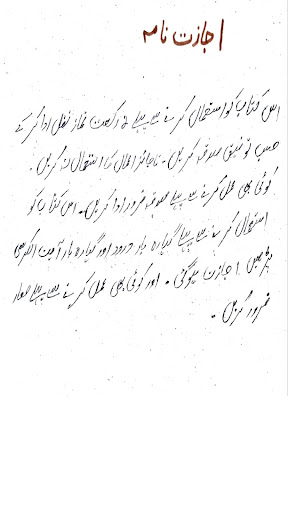 اجازت نامہ
اس کتاب کو استعمال کرنے سے پہلے 2 رکعت نماز نفل ادا کر کے
حسب توفیق صدقہ کریں۔ ناجائز اعمال کا استعمال نہ کریں۔
کوئی بھی عمل کرنے سے پہلے صدقہ ضرور ادا کریں۔ اس کتاب کو
استعمال کرنے سے پہلے گیارہ بار درود اور گیارہ بار آیت الکرسی
پڑھیں اجازت ہوگی۔ اور کوئی بھی عمل کرنے سے پہلے حصار
ضرور کریں۔